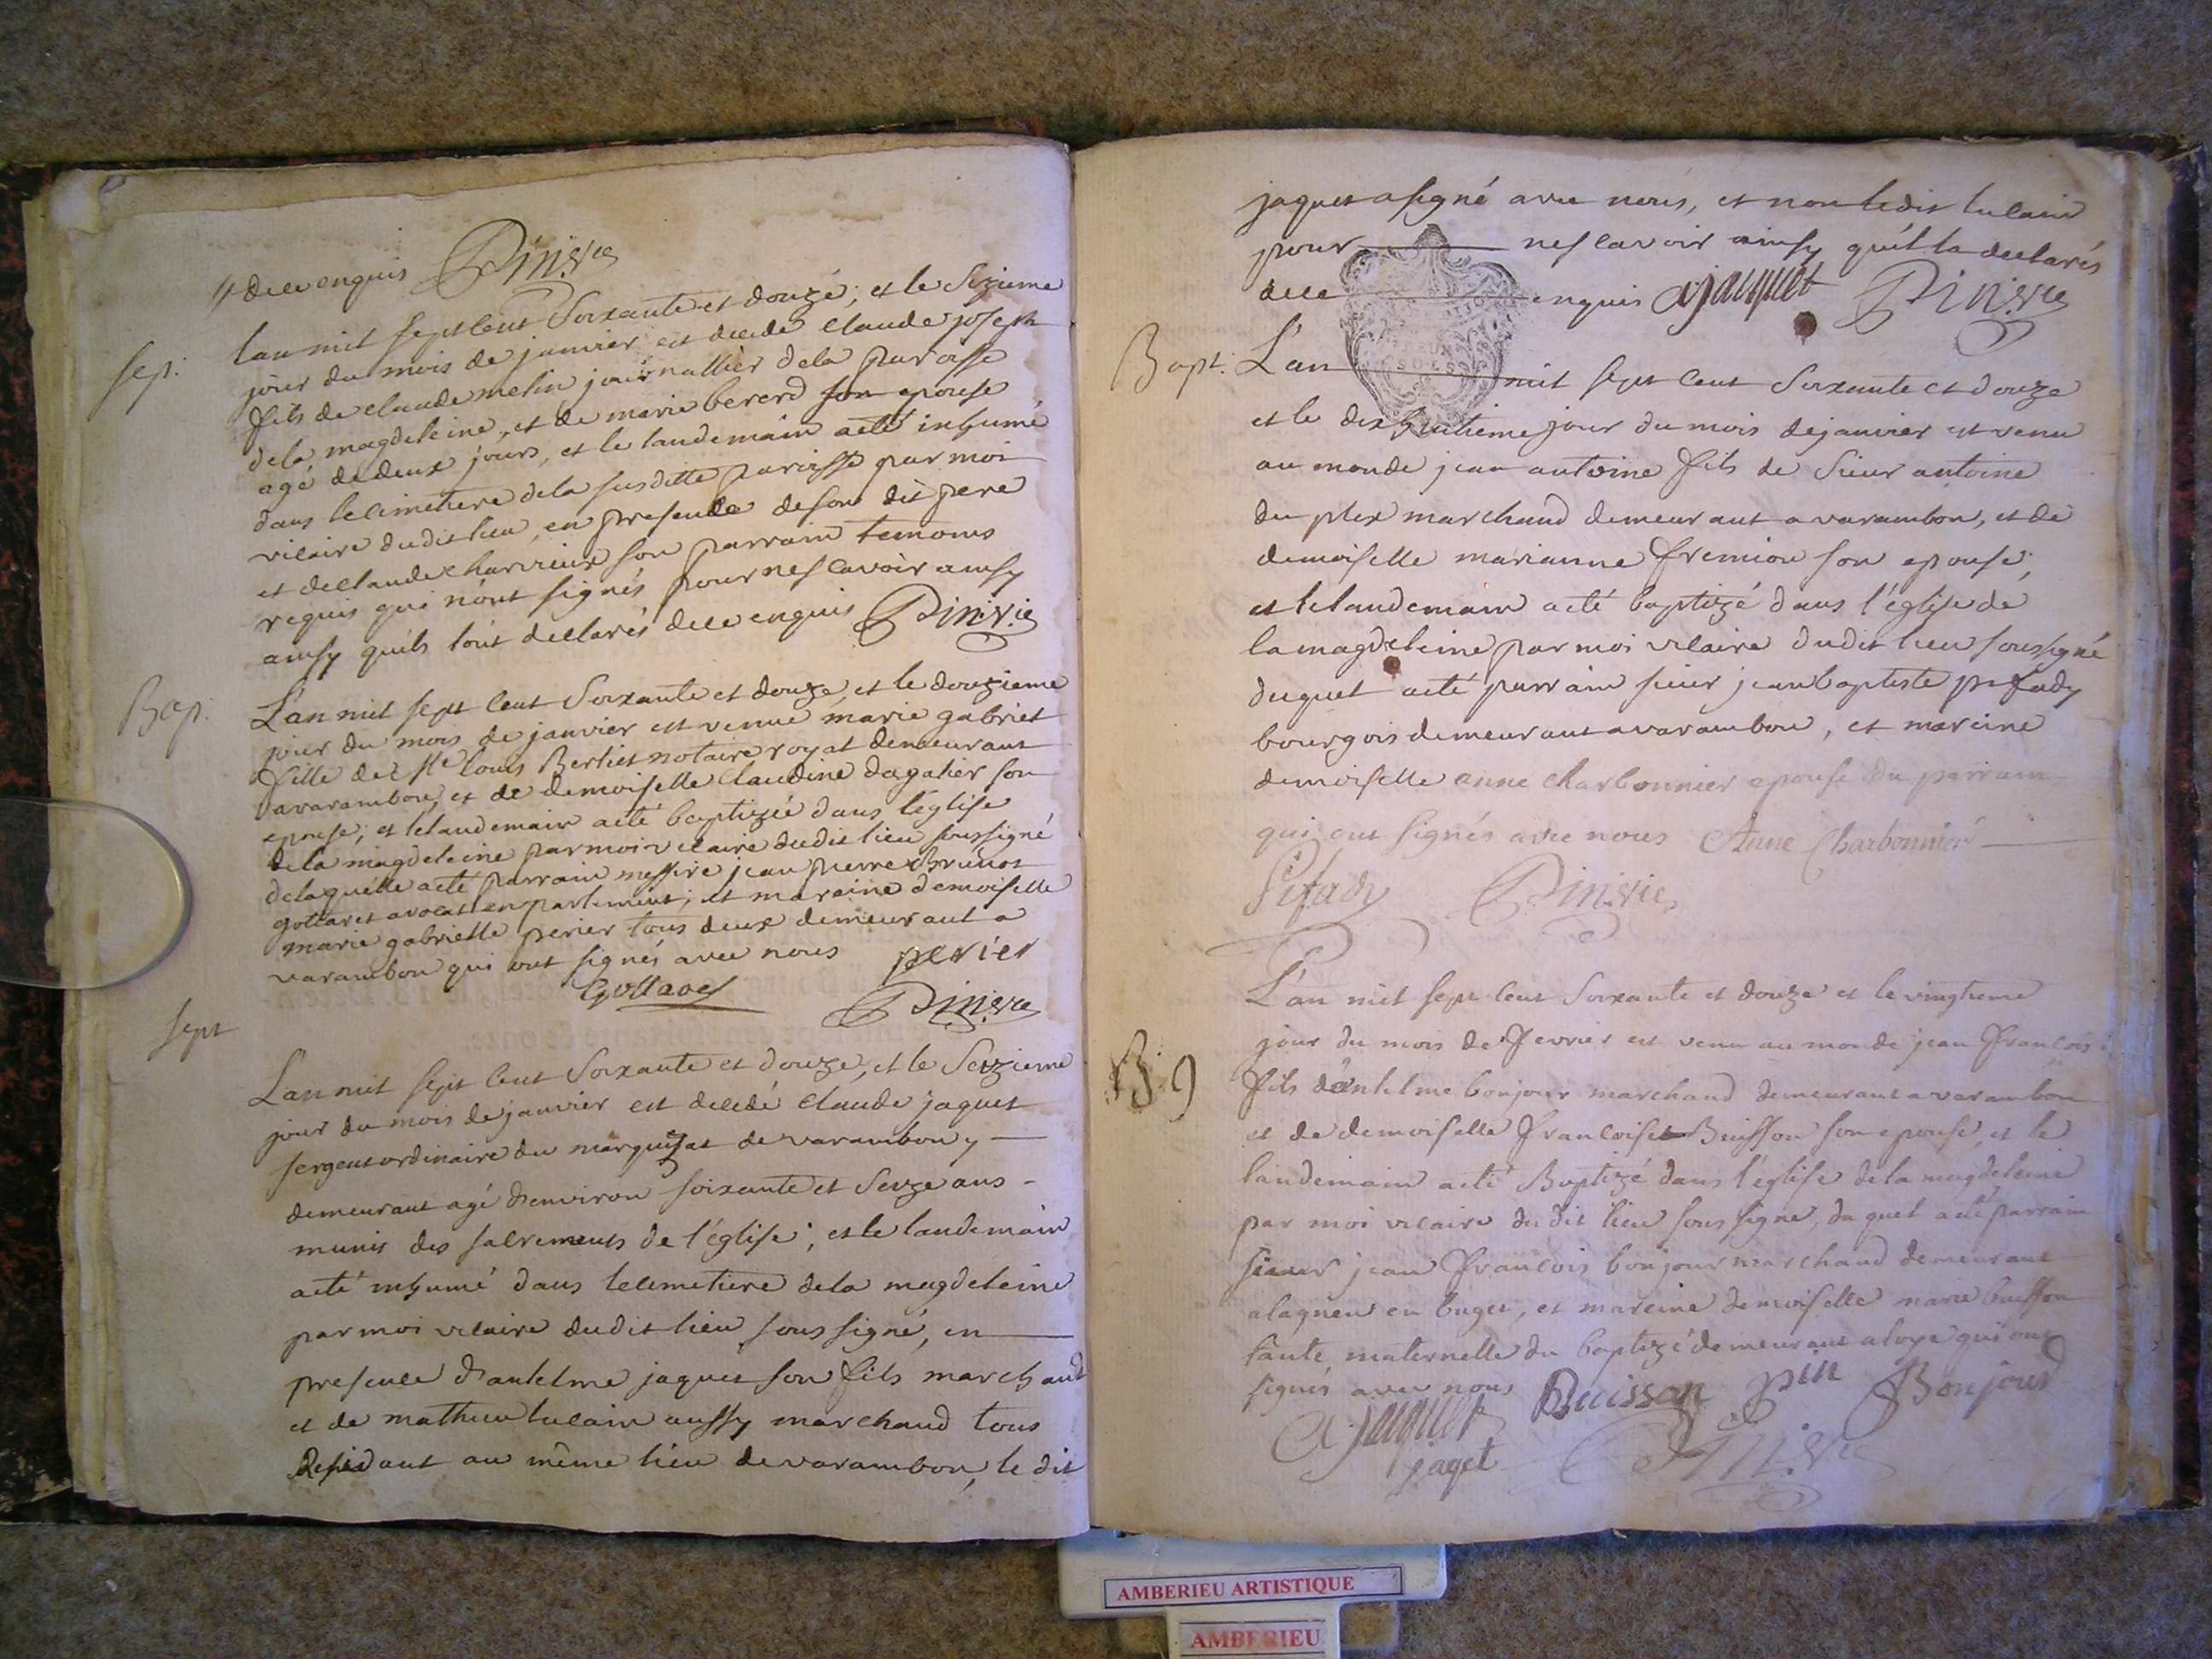 // de ce enquis Pin vic
sep.
lan mil sept cent Soixante et douze, et le Sizieme
jour du mois de janvier est decedé claude joseph
fils de claude melin journallier de la paroisse
de la magdeleine, et de marie bererd son epouse
agé de deux jours, et le landemain a eté inhumé
dans le cimetiere de la susditte paroisse par moi
vicaire dudit lieu, en presence de son dit pere
et de claude charvieux son parrain temoins
requis qui n'ont signés pour ne scavoir ainsy
ainsy quils l'ont declarés de ce enquis Pin vic
Bap.
L'an mil sept cent Soixante et douze, et le douzieme
jour du mois de janvier est venue marie gabriel
fille de Me louis Berliet notaire royal demeurant
a varambon, et de demoiselle claudine dagalier son
epouse, et le landemain a eté baptizée dans l'église
de la magdeleine par moi vicaire dudit lieu soussigné
de laquelle a eté parrain messire jean pierre Brunot
gollaret avocat en parlement, et maraine demoiselle
marie gabrielle perier tous deux demeurant a
varambon qui ont signés avec nous perier
Pin vic
sept
L'an mil sept cent Soixante et douze, et le Seizieme
jour du mois de janvier est decedé claude jaquet
sergent ordinaire du marquizat de varambon y
demeurant agé d'environ soixante et Seize ans
munis des sacrements de l'église, et le landemain
a eté inhumé dans le cimetiere de la magdeleine
par moi vicaire dudit lieu sous signé, en
presence d'antelme jaquet son fils marchand
et de mathieu tulain aussy marchand tous
Residant au même lieu de varambon, le dit
jaquet a signé avec nous, et non ledit tulain
pour ne scavoir ainsy qu'il la declarés
de ce enquis A jacquet Pin vic
Bapt.
L'an mil sept cent Soixante et douze
et le dix huitieme jour du mois de janvier est venu
au monde jean antoine fils de Sieur antoine
du plex marchand demeurant a varambon, et de
demoiselle marianne fremion son epouse,
et le landemain a eté baptizé dans l'église de
la magdeleine par moi vicaire dudit lieu soussigné
duquel a eté parrain sieur jean baptiste pefady
bourgois demeurant a varambon, et mareine
demoiselle anne charbonnier epouse du parrain
qui ont signés avec nous Anne Charbonnier
Pefady Pin vic
L'an mil sept cent Soixante et douze et le vingtieme
jour du mois de Fevrier est venu au monde jean François
B. 9
fils d'antelme bonjour marchand demeurant a varambon
et de demoiselle Francoise Buisson son epouse, et le
landemain a eté Baptizé dans l'église de la magdeleine
par moi vicaire du dit lieu sous signé, duquel a eté parrain
sieur jean François bonjour marchand demeurant
a lagneu en buget, et mareine demoiselle marie buisson
tante maternelle du baptizé demeurant a loye qui ont
signés avec nous Buisson pin Bonjour
A jacquet
jaget Pin vic
AMBERIEU ARTISTIQUE
AMBERIEU